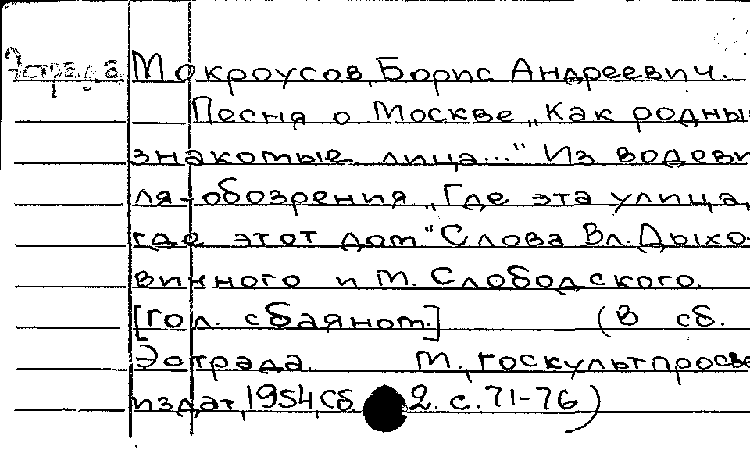 Эстрада Мокроусов, Борис Андреевич.
Песня о Москве „Как родные
знакомые лица..." Из водеви-
ля-обозрения „Где эта улица,
где этот дом" Слова Вл. Дыхо-
вичного и М. Слободского.
[Гол. с баяном.] (В сб.
Эстрада. М., госкультпросвет
издат, 1954, Сб. 2. с. 71-76)